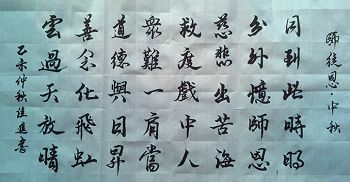 師徒恩·中秋
月到此時明
分外憶師恩
慈悲出苦海
救度戲中人
眾難一肩當
道德與日昇
善念化飛虹
雲過天放晴
乙未仲秋佳進書